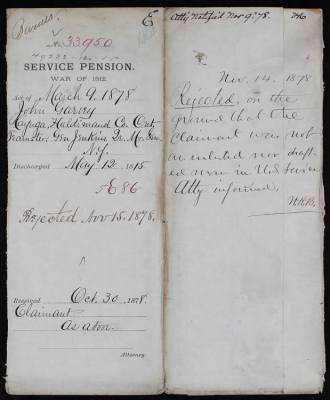 E
No. 33,950
SERVICE PENSION.
WAR OF 1812.
Act of March 9, 1878
John Garey
Cayuga, Haldimand Co. Ont
Teamster, Gen Jenkins Qr. Mr. Gen.
N.Y.
Discharged May 12 1815
Rejected Nov 15. 1878.
Received Oct. 30 1878.
Claimant
As above.
Attorney.
Atty Notified Nov 9. 78.
Nov. 14. 1878
Rejected, on the
ground that the
claimant was not
an enlisted nor draft-
ed man in U.S. Service
Atty informed.